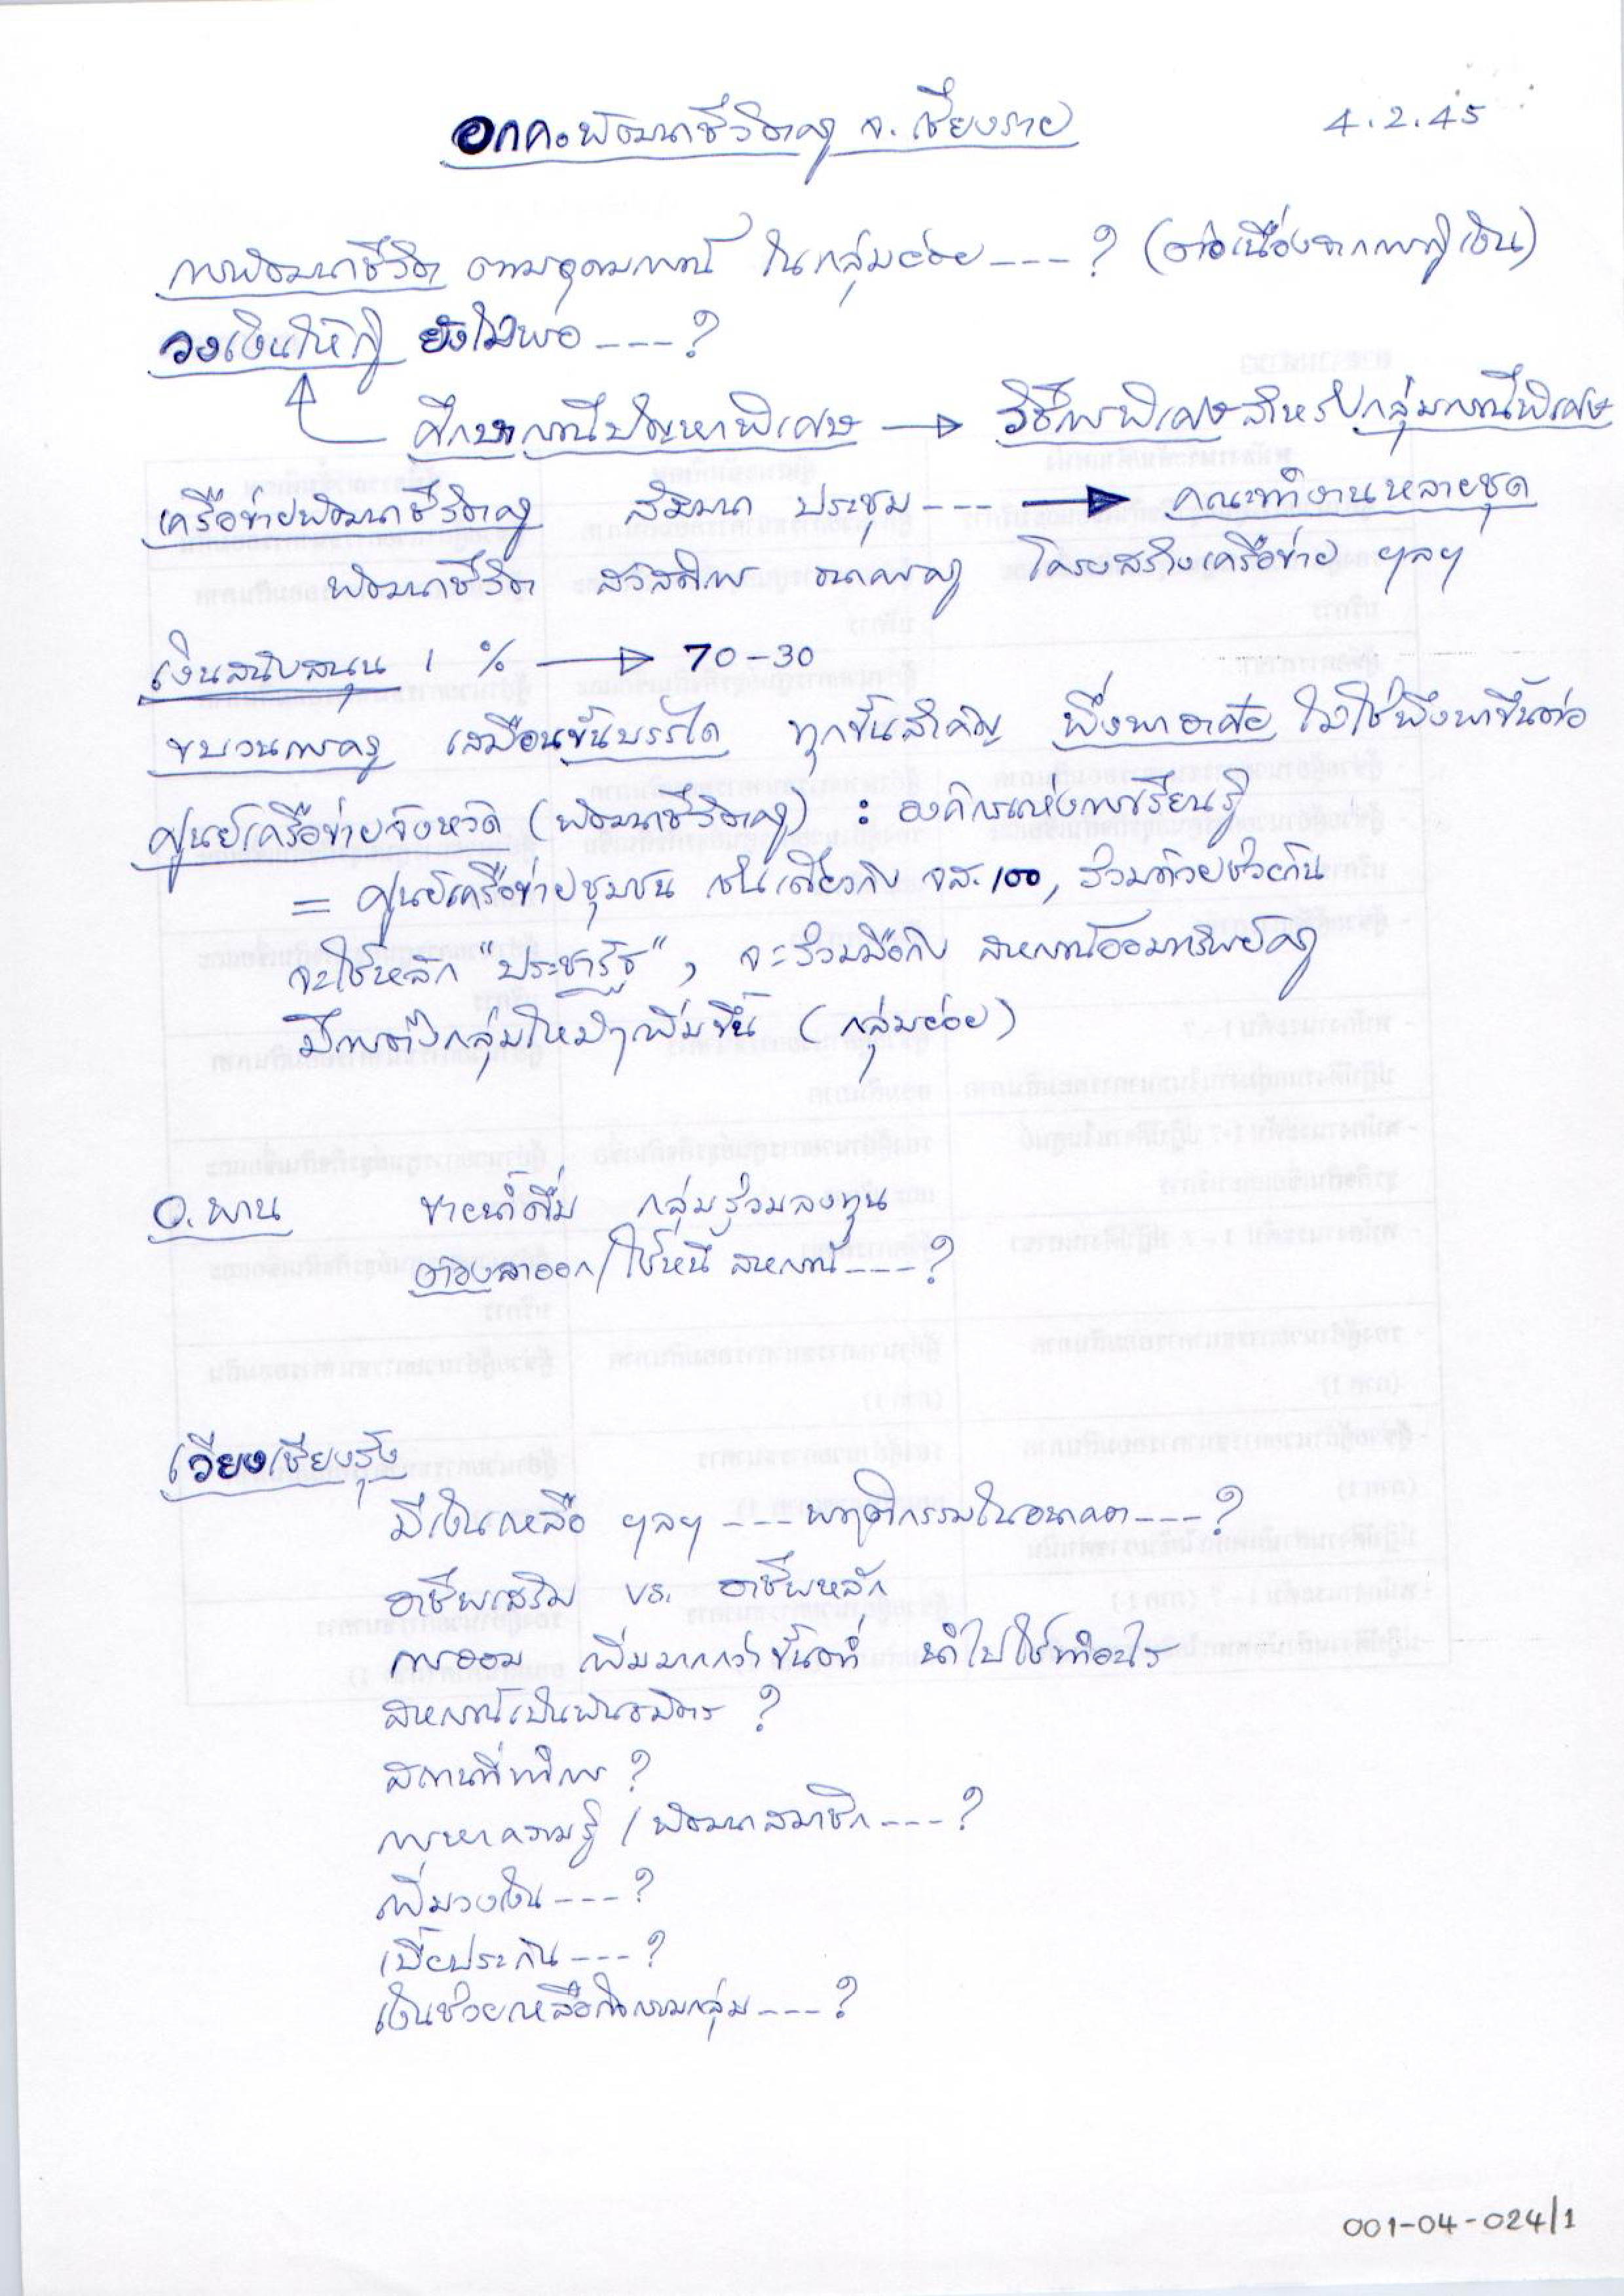 อกค. พัฒนาชีวิตครู จ. เชียงราย 4.2.45
การพัฒนาชีวิต ตามอุดมการณ์ ในกลุ่มย่อย ---- ? (ต่อเนื่องจากการกู้เงิน)
วงเงินให้กู้ ยังไม่พอ ---- ?
ศึกษากรณีปัญหาพิเศษ → วิธีการพิเศษสำหรับกลุ่มกรณีพิเศษ
เครือข่ายพัฒนาชีวิตครู สัมมนา ประชุม ---- → คณะทำงานหลายชุด
พัฒนาชีวิต สวัสดิการ ธนาคารครู โครงสร้างเครือข่าย ฯลฯ
เงินสนับสนุน 1 % → 70-30
ขบวนการครู เสมือนขั้นบรรได ทุกขั้นสำคัญ พึ่งพาอาศัย ไม่ใช่พึ่งพาขึ้นต่อ
ศูนย์เครือข่ายจังหวัด (พัฒนาชีวิตครู) : องค์กรแห่งการเรียนรู้
= ศูนย์เครือข่ายชุมชน เช่นเดียวกับ จส.100, ร่วมด้วยช่วยกัน
จะใช้หลัก "ประชารัฐ", จะร่วมมือกับ สหกรณ์ออมทรัพย์ครู
มีการตั้งกลุ่มใหม่ๆเพิ่มขึ้น (กลุ่มย่อย)
อ. พาน ขายน้ำดื่ม กลุ่มร่วมลงทุน
ต้องลาออก/ใช้หนี้ สหกรณ์ ---- ?
เวียงเชียงรุ้ง
มีเงินเหลือ ฯลฯ ---- พฤติกรรมในอนาคต ---- ?
อาชีพเสริม vs. อาชีพหลัก
การออม เพิ่มมากกว่าขั้นต่ำ นำไปใช้ทำอะไร
สหกรณ์เป็นพันธมิตร ?
สถานที่ทำการ ?
การหาความรู้ / พัฒนาสมาชิก ---- ?
เพิ่มวงเงิน ---- ?
เบี้ยประกัน ---- ?
เงินช่วยเหลือกิจกรรมกลุ่ม ---- ?
001-04-024/1